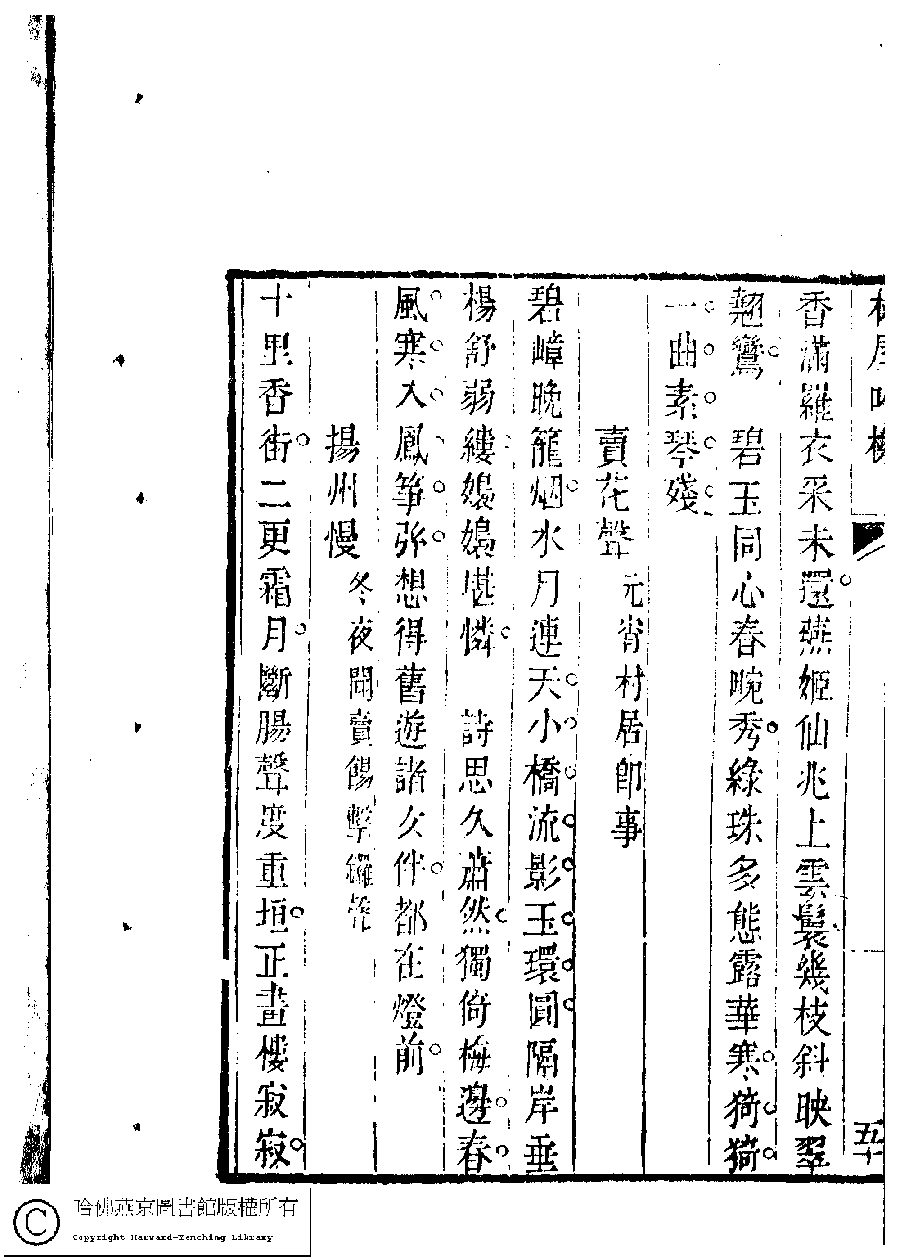 香滿羅衣采未還燕姬仙兆上雲鬟幾枝斜映翠
翹鸞　碧玉同心春晼秀綠珠多態露華寒猗猗
一曲素琴殘
賣花聲 元宵村居卽事
碧嶂晚籠烟水月連天小橋流影玉環圓隔岸垂
楊舒弱縷嬝嬝堪憐　詩思久蕭然獨倚梅邊春
風寒入鳳箏弦想得舊遊諸女伴都在燈前
揚州慢 冬夜聞賣餳擊鑼聲
十里香街二更霜月斷腸聲度重垣正畫樓寂寂
五十
哈佛燕京圖書館版權所有
Copyright Harvard-Yenching Library